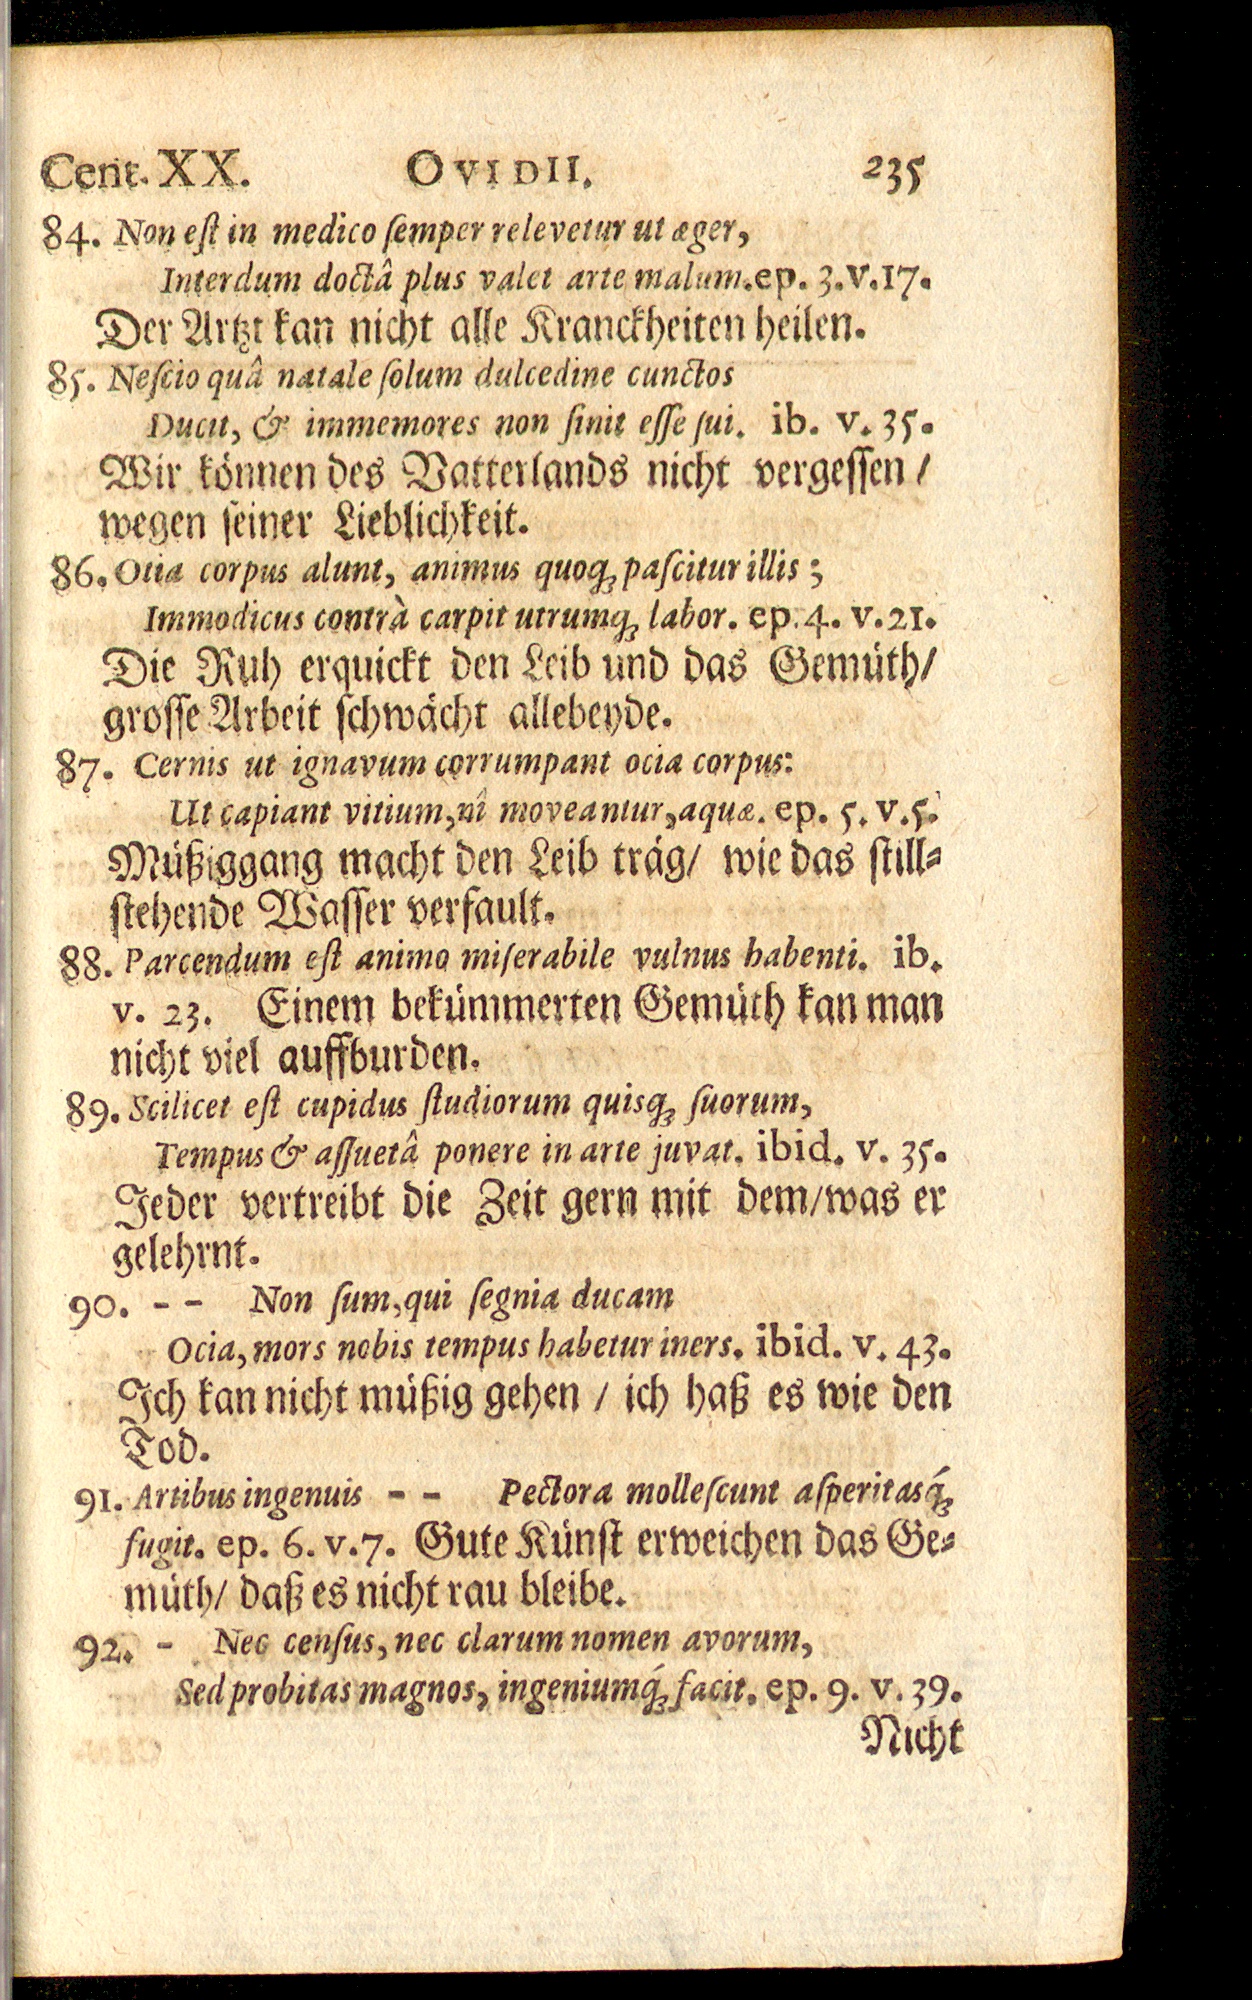 Cent. XX. OVIDII. 235
84. Non eſt in medico ſemper relevetur ut æger,
Interdum doctâ plus valet arte malum. ep. 3. v. 17.
Der Artzt kan nicht alle Kranckheiten heilen.
85. Neſcio quâ natale ſolum dulcedine cunctos
Ducit, & immemores non ſinit eſſe ſui. ib. v. 35.
Wir können des Vatterlands nicht vergeſſen /
wegen ſeiner Lieblichkeit.
86. Otia corpus alunt, animus quoq́; paſcitur illis ;
Immodicus contrà carpit utrumq́; labor. ep. 4. v. 21.
Die Ruh erquickt den Leib und das Gemüth/
groſſe Arbeit ſchwächt allebeyde.
87. Cernis ut ignavum corrumpant ocia corpus:
Ut capiant vitium, nî moveantur, aquæ. ep. 5. v. 5.
Müßiggang macht den Leib träg/ wie das ſtill⸗
ſtehende Waſſer verfault.
88. Parcendum eſt animo miſerabile vulnus habenti. ib.
v. 23. Einem bekümmerten Gemüth kan man
nicht viel auffburden.
89. Scilicet eſt cupidus ſtudiorum quisq; ſuorum,
Tempus & aſſuetâ ponere in arte juvat. ibid. v. 35.
Jeder vertreibt die Zeit gern mit dem/ was er
gelehrnt.
90. - - Non ſum, qui ſegnia ducam
Ocia, mors nobis tempus habetur iners. ibid. v. 43.
Ich kan nicht müßig gehen / ich haß es wie den
Tod.
91. Artibus ingenuis - - Pectora molleſcunt aſperitasq́;
fugit. ep. 6. v. 7. Gute Künſt erweichen das Ge⸗
müth/ daß es nicht rau bleibe.
92. - Nec cenſus, nec clarum nomen avorum,
Sed probitas magnos, ingeniumq́; facit. ep. 9. v. 39.
Nicht